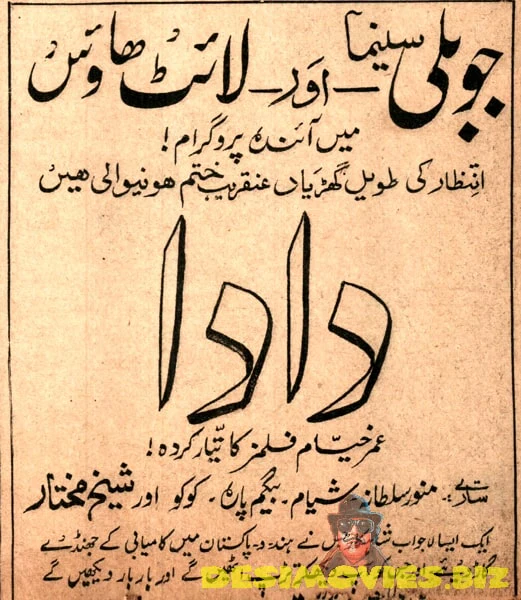 جوبلی سینما — اور — لائٹ ھاوٗس
میں آئندہ پروگرام!
انتظار کی طویل گھڑیاں عنقریب ختم ھونیوالی ھیں
دادا
عمر خیّام فلمز کا تیّار کردہ!
ستارے: منور سلطانہ - شیام - بیگم پارہ - کوکو اور شیخ مختار
ایک ایسا لاجواب نے ہند و پاکستان میں کامیابی کے جھنڈے
گے اور بار بار دیکھیں گے
DESIMOVIES.BIZ